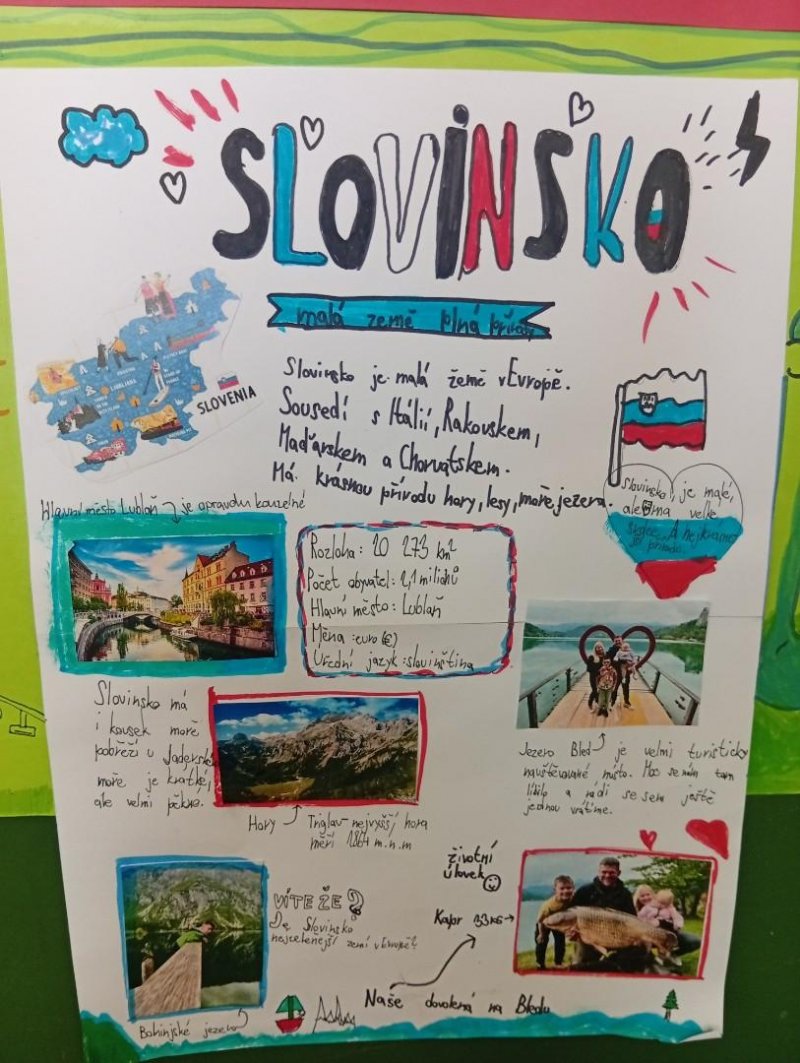 SLOVINSKO
malá země plná přírody
SLOVENIA
LJUBLJANA
Slovinsko je malá země v Evropě.
Sousedí s Itálií, Rakouskem,
Maďarskem a Chorvatskem.
Má krásnou přírodu hory, lesy, moře, jezera.
Slovinsko je malé,
ale má velké
srdce. A nejkrásnější
přírodu.
Hlavní město Lublaň → je opravdu kouzelné
Rozloha: 20 273 km²
Počet obyvatel: 2,1 milionů
Hlavní město: Lublaň
Měna: euro (€)
Úřední jazyk: slovinština
Slovinsko má
i kousek moře
pobřeží u Jaderské
moře je krátké,
ale velmi pěkné.
Hory
Triglav - nejvyšší hora
měří 2864 m.n.m
Jezero Bled je velmi turisticky
navštěvované místo. Moc se nám tam
líbilo a rádi se sem ještě
jednou vrátíme.
VÍTE ŽE?
Je Slovinsko
nejzelenější zemí v Evropě?
životní
úlovek
Kapr 33 KG →
Naše dovolená na Bledu
Bohinjské jezero